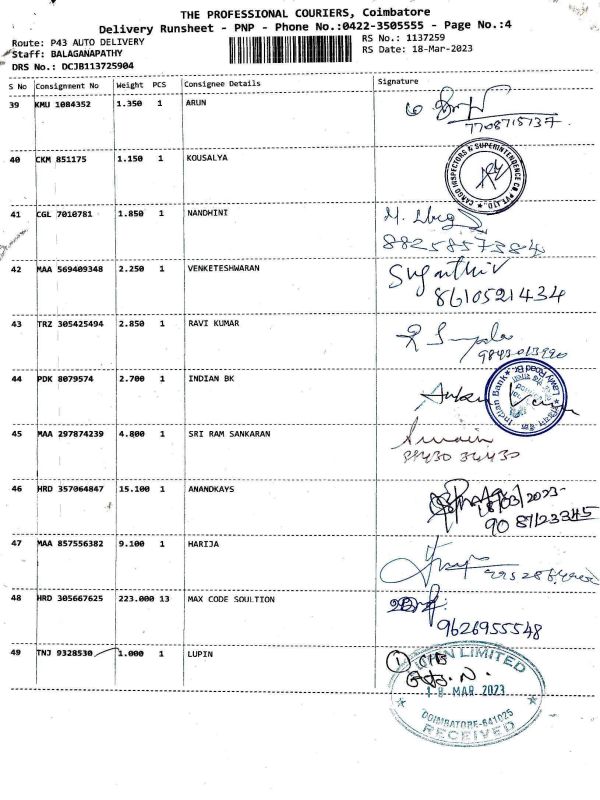 THE PROFESSIONAL COURIERS, Coimbatore
Delivery Runsheet - PNP - Phone No.:0422-3505555 - Page No.:4
Route: P43 AUTO DELIVERY
RS No.: 1137259
Staff: BALAGANAPATHY
RS Date: 18-Mar-2023
DRS No.: DCJB113725904
S No Consignment No Weight PCS Consignee Details Signature
39 KMU 1084352 1.350 1 ARUN
7708715737.
40 CKM 851175 1.150 1 KOUSALYA
CARGO INSPECTORS & SUPERINTENDENCE CO. PVT. LTD.
41 CGL 7010781 1.850 1 NANDHINI
8825857384
42 MAA 569409348 2.250 1 VENKETESHWARAN
Suganthi V
8610521434
43 TRZ 305425494 2.850 1 RAVI KUMAR
9843013990
44 PDK 8079574 2.700 1 INDIAN BK
Indian Bank
45 MAA 297874239 4.800 1 SRI RAM SANKARAN
46 HRD 357064847 15.100 1 ANANDKAYS
18/03/2023-
9087123345
47 MAA 857556382 9.100 1 HARIJA
48 HRD 305667625 223.000 13 MAX CODE SOULTION
9626955548
49 TNJ 9328530 1.000 1 LUPIN
LIMITED
18 MAR 2023
COIMBATORE-641025
RECEIVED